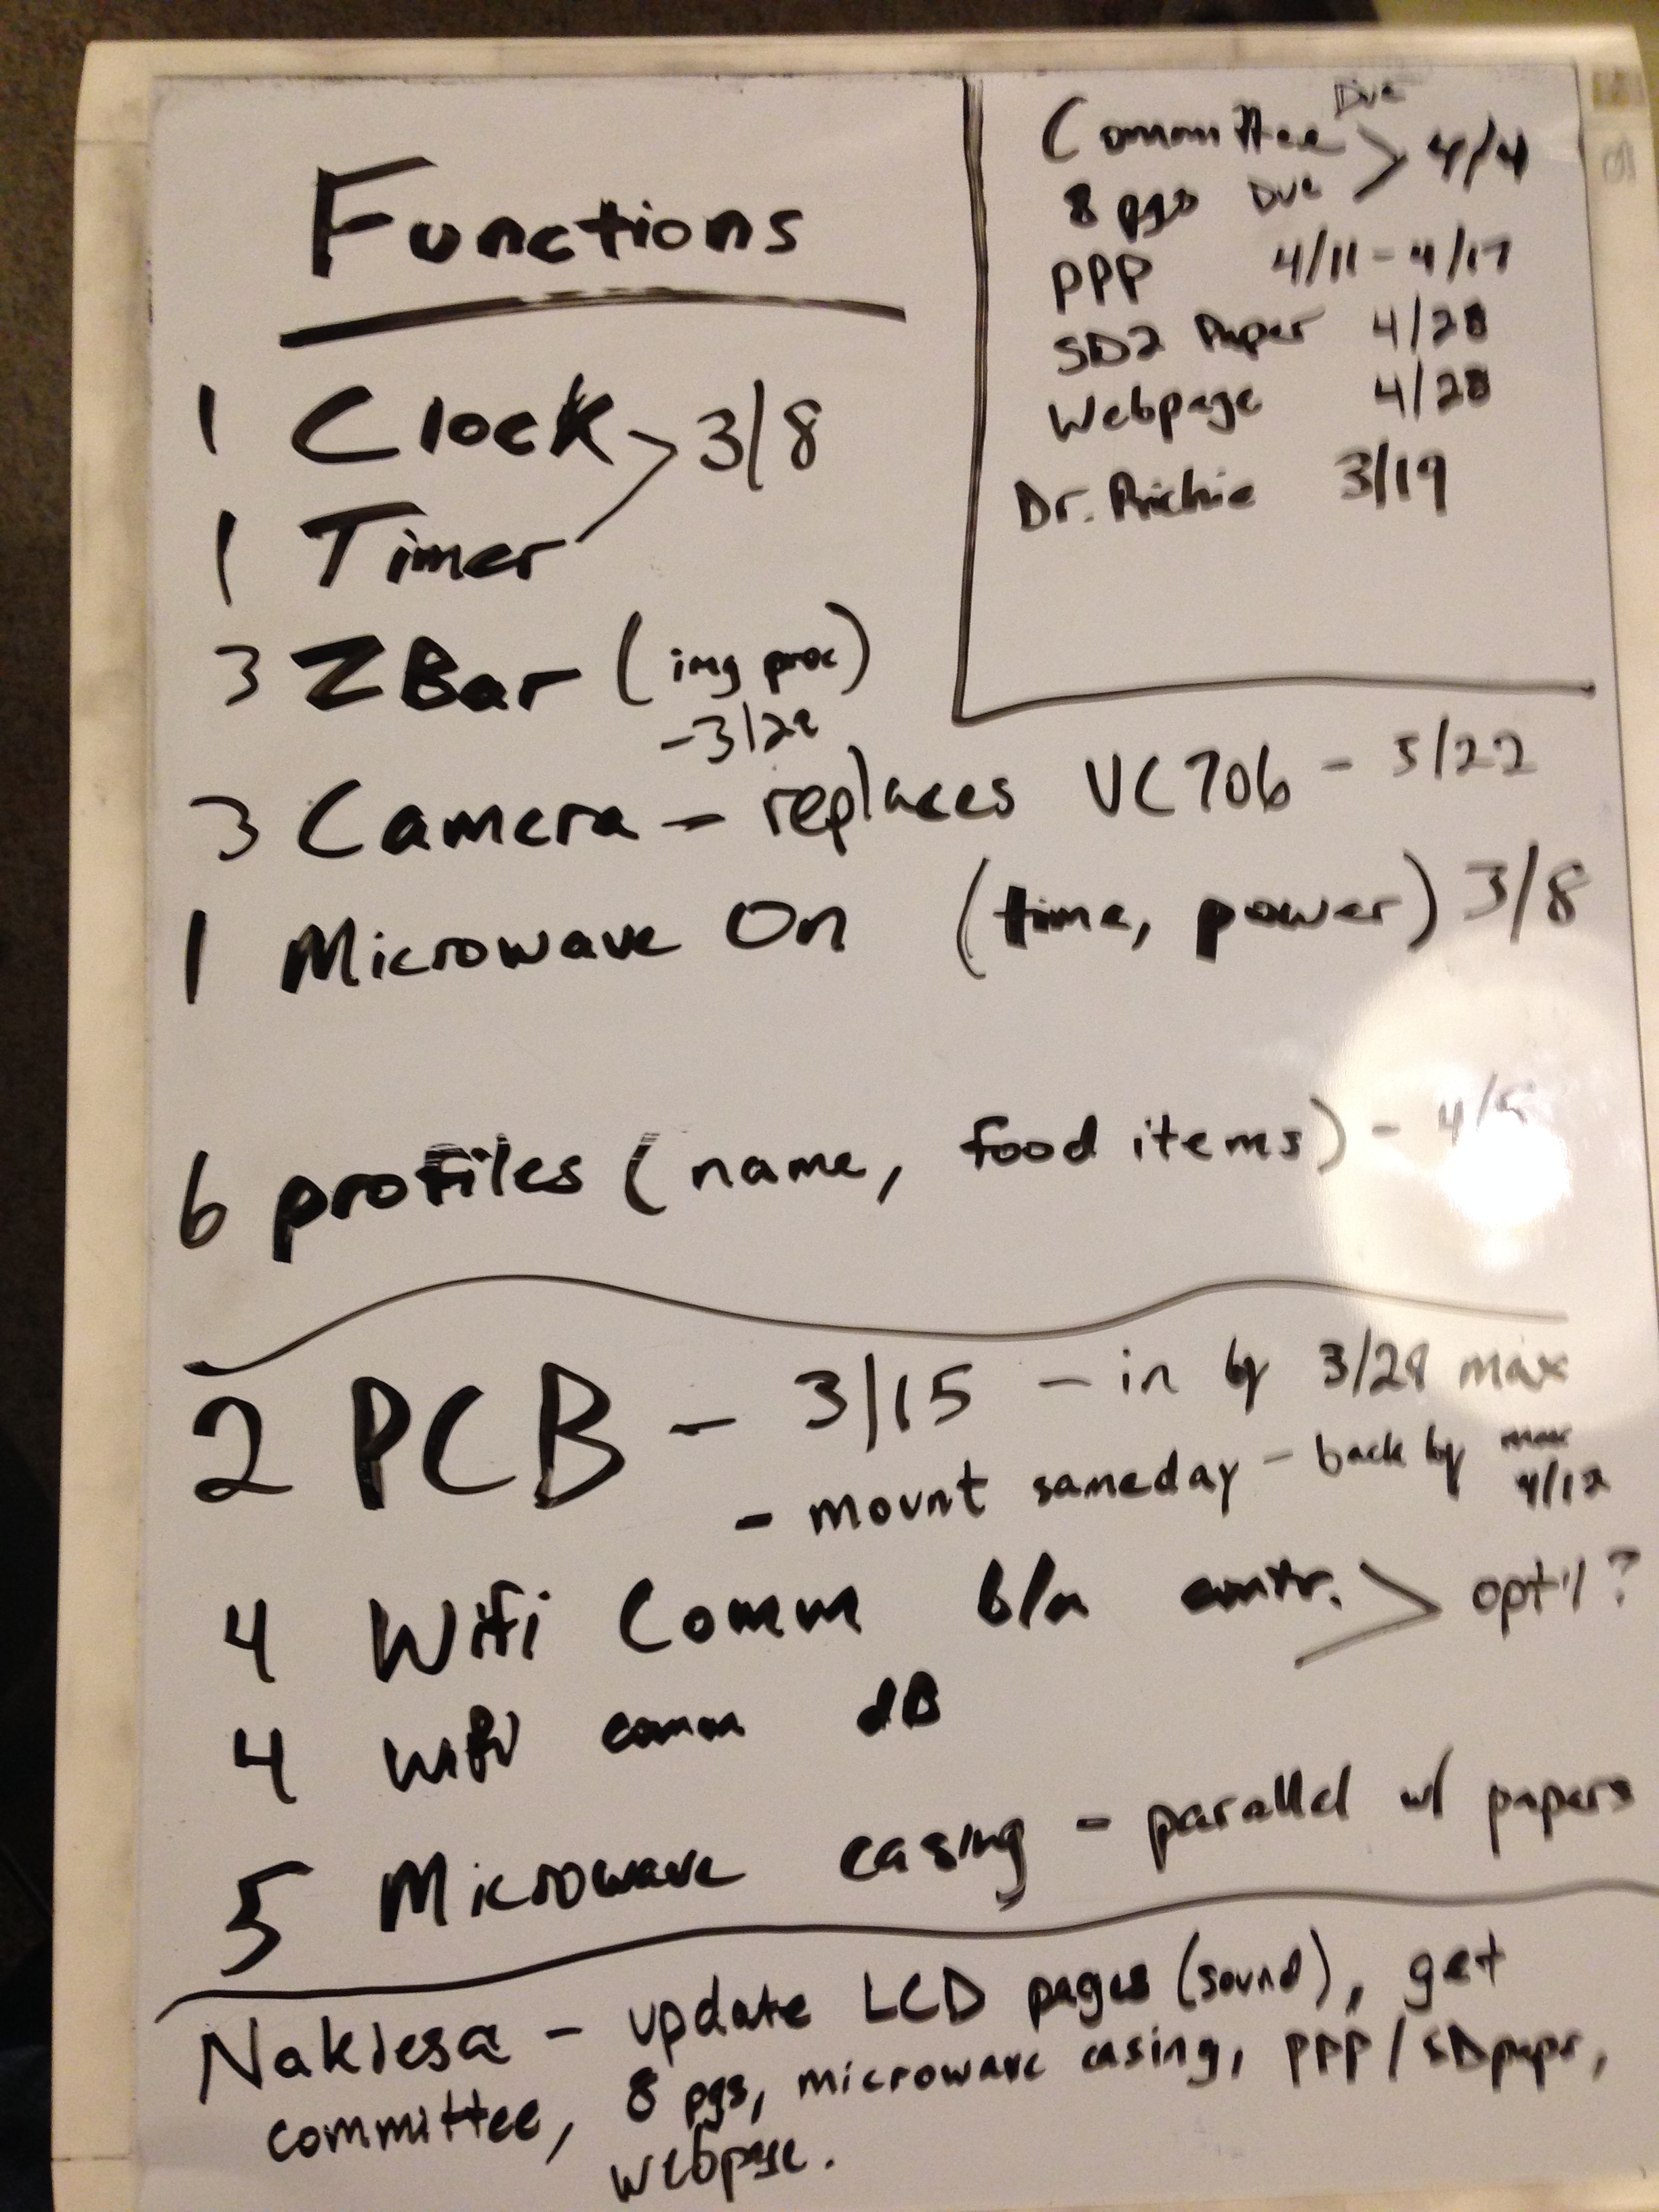 Functions
1 Clock > 3/8
1 Timer
3 ZBar (img proc)
- 3/22
3 Camera - replaces VC706 - 3/22
1 Microwave On (time, power) 3/8
6 profiles (name, food items) - 4/5
Due
Committee > 4/4
8 pgs Due
PPP 4/11 - 4/17
SD2 Paper 4/28
Webpage 4/28
Dr. Richie 3/19
2 PCB - 3/15 - in by 3/29 max
- mount sameday - back by max
4/12
4 Wifi Comm b/n contr. > opt'l?
4 Wifi comm dB
5 Microwave casing - parallel w/ papers
Nakiesa - update LCD pages (sound), get
committee, 8 pgs, microwave casing, PPP/SDpapr,
webpage.